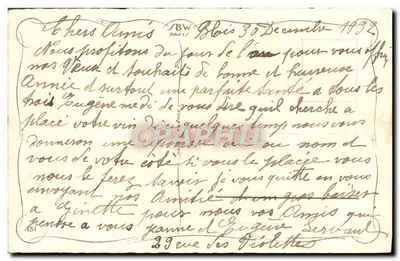 Chers Amis Blois 30 Decembre 1932
SBW
PARIS
Nous profitons du jour de l'an pour vous offrir
nos Veux et Souhaits de bonne et heureuse
Année et surtout une parfaite Santé a tous les
trois Eugene me di de vous dire quil cherche a
placé votre vin dici quelques temps nous vous
donnerons une reponse a vou nom et
vous de votre coté si vous le placez vous
nous le ferez savoir je vous quitte en vous
envoyant nos Amitié et un gros baiser
a Ginette pour nous vos Amis qui
pense a vous Jeanne et Eugene Servant
29 rue des Violettes
151